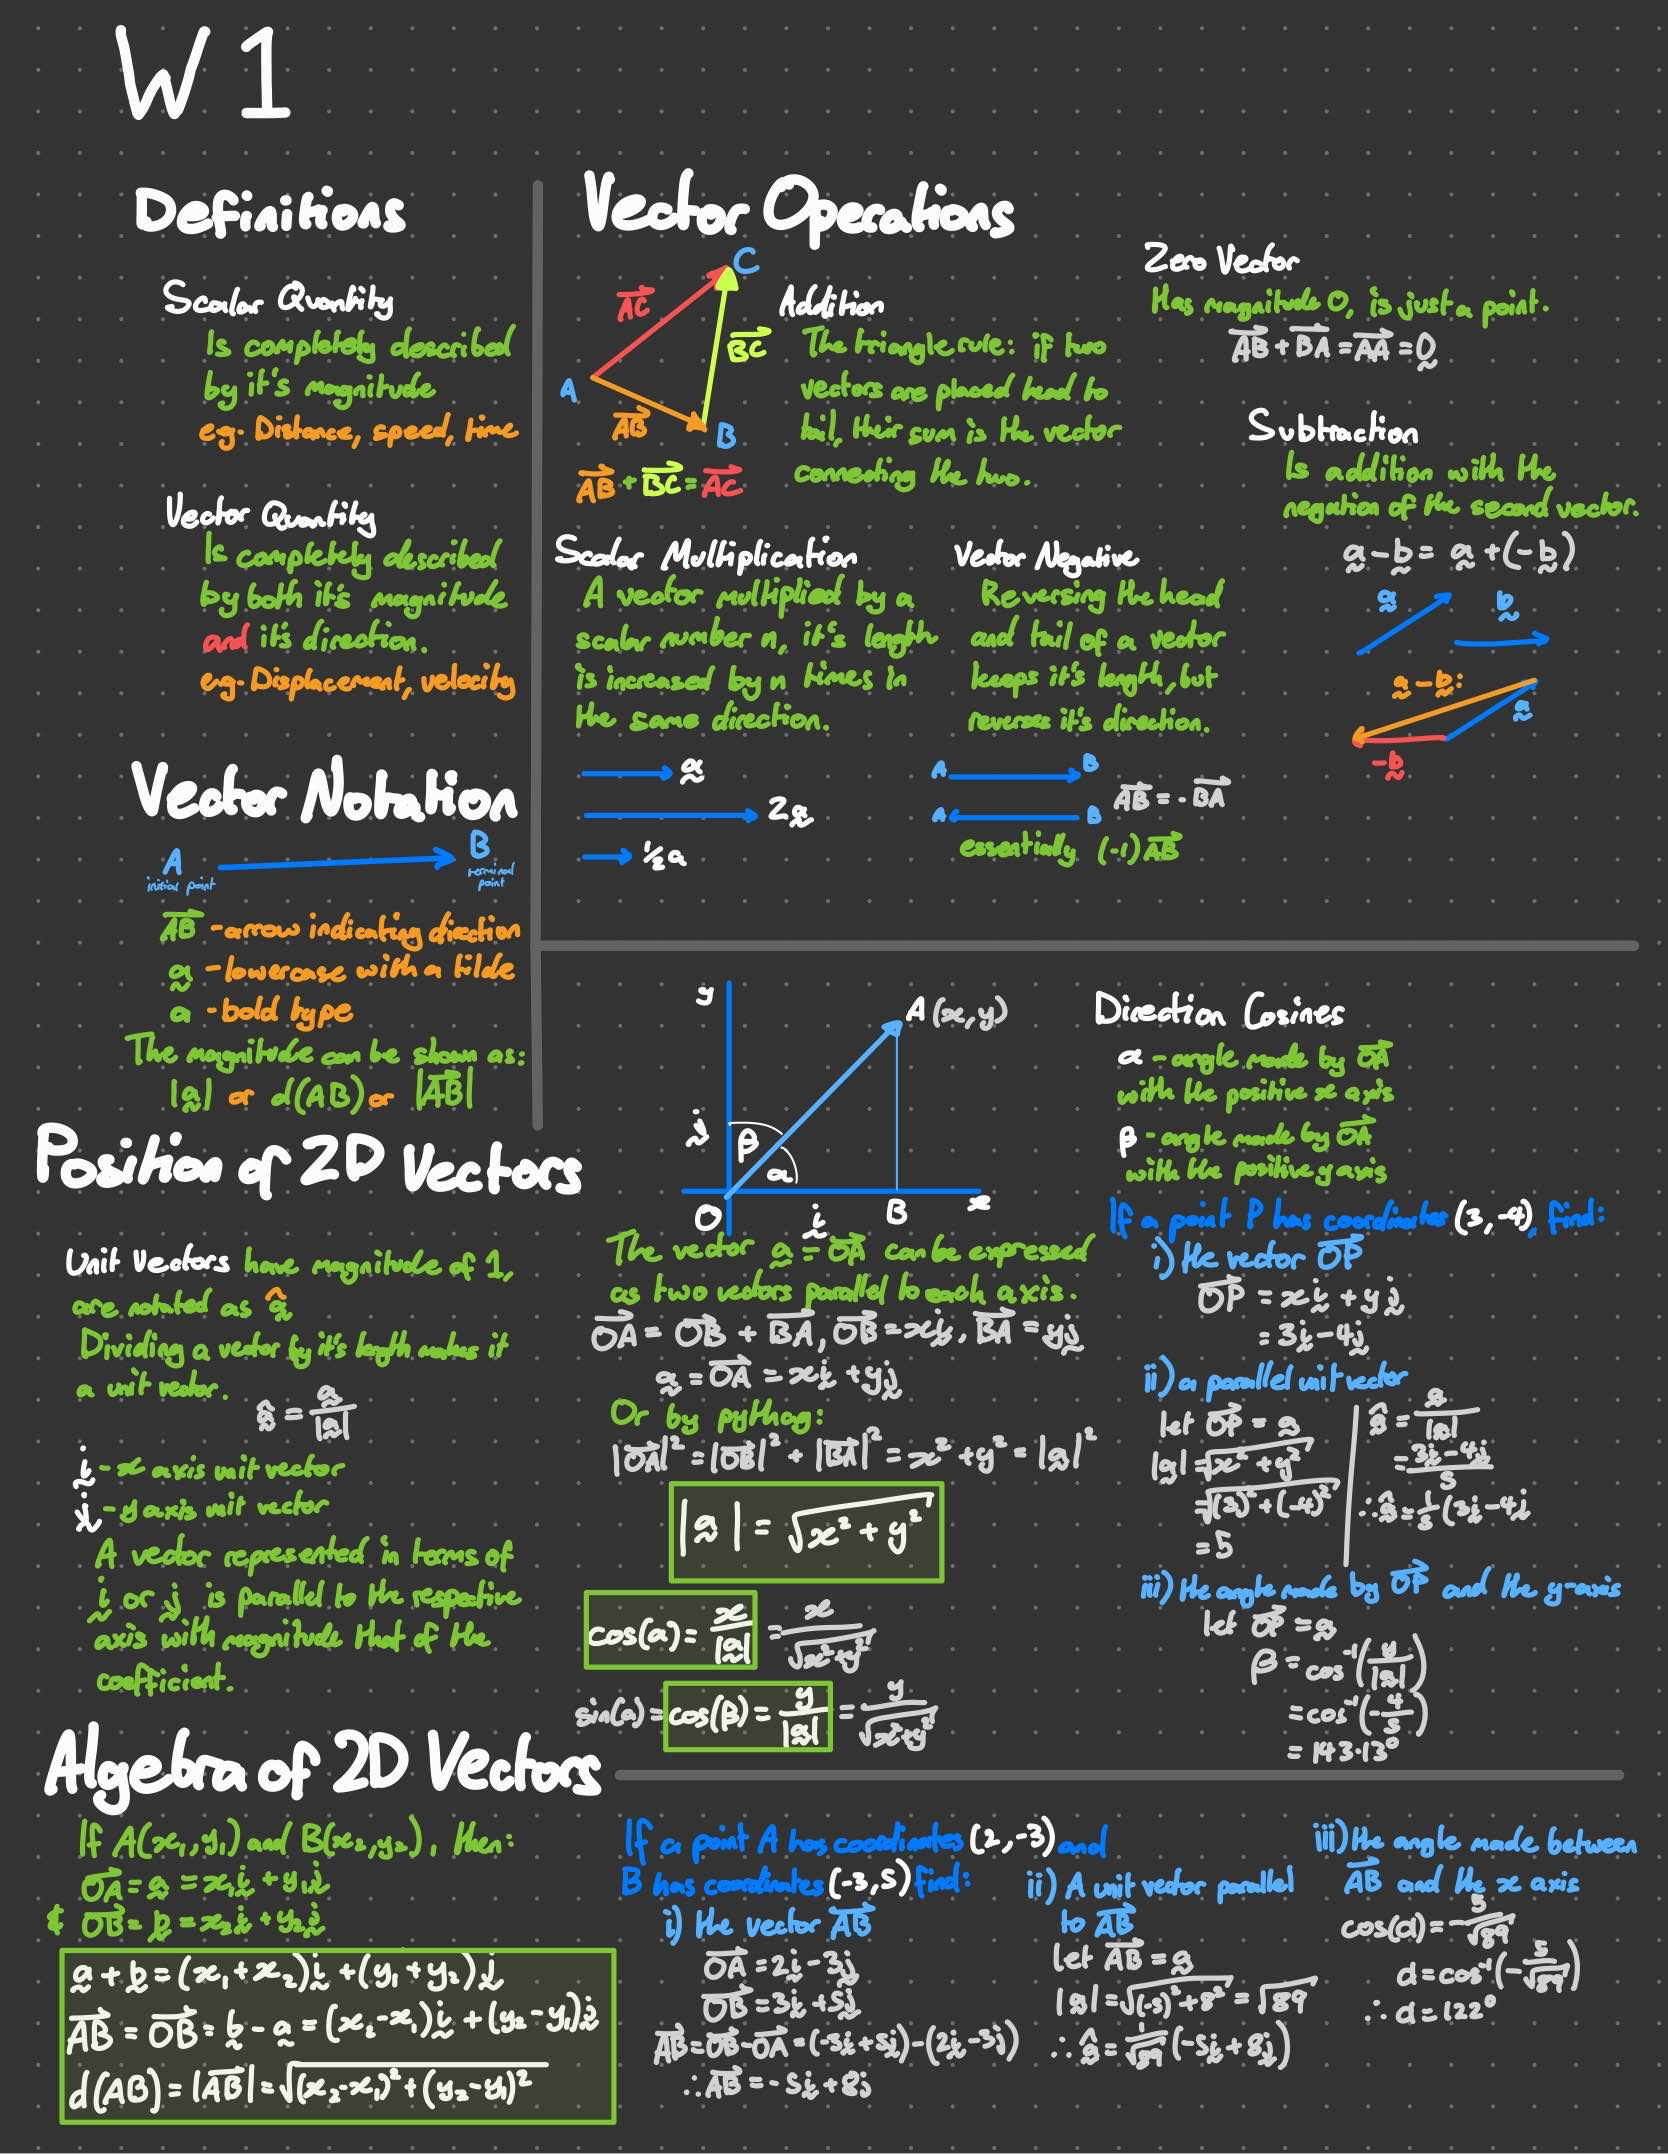 W1
Definitions
Scalar Quantity
Is completely described
by it's magnitude
eg. Distance, speed, time
Vector Quantity
Is completely described
by both it's magnitude
and it's direction.
eg. Displacement, velocity
Vector Notation
A
initial point
B
terminal
point
AB -arrow indicating direction
a -lowercase with a tilde
a -bold type
The magnitude can be shown as:
|a| or d(AB) or |AB|
Vector Operations
C
AC
BC
A
AB
B
AB + BC = AC
Addition
The triangle rule: if two
vectors are placed head to
tail, their sum is the vector
connecting the two.
Zero Vector
Has magnitude 0, is just a point.
AB + BA = AA = 0
Subtraction
Is addition with the
negation of the second vector.
a - b = a + (-b)
a
b
a - b:
a
-b
Scalar Multiplication
A vector multiplied by a
scalar number n, it's length
is increased by n times in
the same direction.
a
2a
½a
Vector Negative
Reversing the head
and tail of a vector
keeps it's length, but
reverses it's direction.
A B
A B
AB = -BA
essentially (-1)AB
Position of 2D Vectors
Unit Vectors have magnitude of 1,
are notated as â
Dividing a vector by it's length makes it
a unit vector.
â = a/|a|
i - x axis unit vector
j - y axis unit vector
A vector represented in terms of
i or j is parallel to the respective
axis with magnitude that of the
coefficient.
y
A (x,y)
j
β
α
O
i
B
x
The vector a = OA can be expressed
as two vectors parallel to each axis.
OA = OB + BA, OB = xi, BA = yj
a = OA = xi + yj
Or by pythag:
|OA|² = |OB|² + |BA|² = x² + y² = |a|²
|a| = √x² + y²
cos(α) = x/|a| = x/√x²+y²
sin(α) = cos(β) = y/|a| = y/√x²+y²
Direction Cosines
α - angle made by OA
with the positive x axis
β - angle made by OA
with the positive y axis
If a point P has coordinates (3,-4), find:
i) the vector OP
OP = xi + yj
= 3i - 4j
ii) a parallel unit vector
let OP = a
|a| = √x² + y²
= √(3)² + (-4)²
= 5
â = a/|a|
= 3i - 4j/5
∴ â = 1/5 (3i - 4j
iii) the angle made by OP and the y-axis
let OP = a
β = cos⁻¹(y/|a|)
= cos⁻¹(-4/5)
= 143.13°
Algebra of 2D Vectors
If A(x₁,y₁) and B(x₂,y₂), then:
OA = a = x₁i + y₁j
& OB = b = x₂i + y₂j
a + b = (x₁ + x₂)i + (y₁ + y₂)j
AB = OB = b - a = (x₂ - x₁)i + (y₂ - y₁)j
d(AB) = |AB| = √(x₂-x₁)² + (y₂-y₁)²
If a point A has coordinates (2,-3) and
B has coordinates (-3,5) find:
i) the vector AB
OA = 2i - 3j
OB = 3i + 5j
AB = OB - OA = (-3i + 5j) - (2i - 3j)
∴ AB = -5i + 8j
ii) A unit vector parallel
to AB
let AB = a
|a| = √(-5)² + 8² = √89
∴ â = 1/√89 (-5i + 8j)
iii) the angle made between
AB and the x axis
cos(α) = -5/√89
α = cos⁻¹(-5/√89)
∴ α = 122°